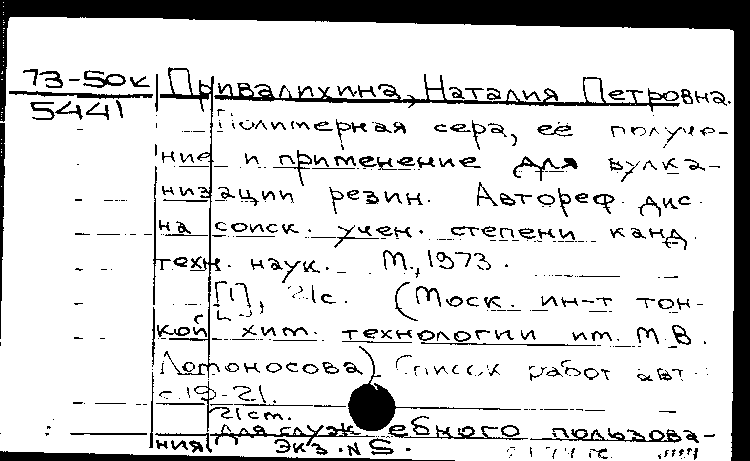 73-50к
5441
Привалихина, Наталия Петровна.
Полимерная сера, её получе-
ние и применение для вулка-
низации резин. Автореф. дис.
на соиск. учен. степени канд.
техн. наук. М., 1973.
[1], 21с. (Моск. ин-т тон-
кой хим. технологии им. М.В.
Ломоносова) Список работ авт.
с.19-21.
21см.
Для служебного пользова-
ния Экз. N S.